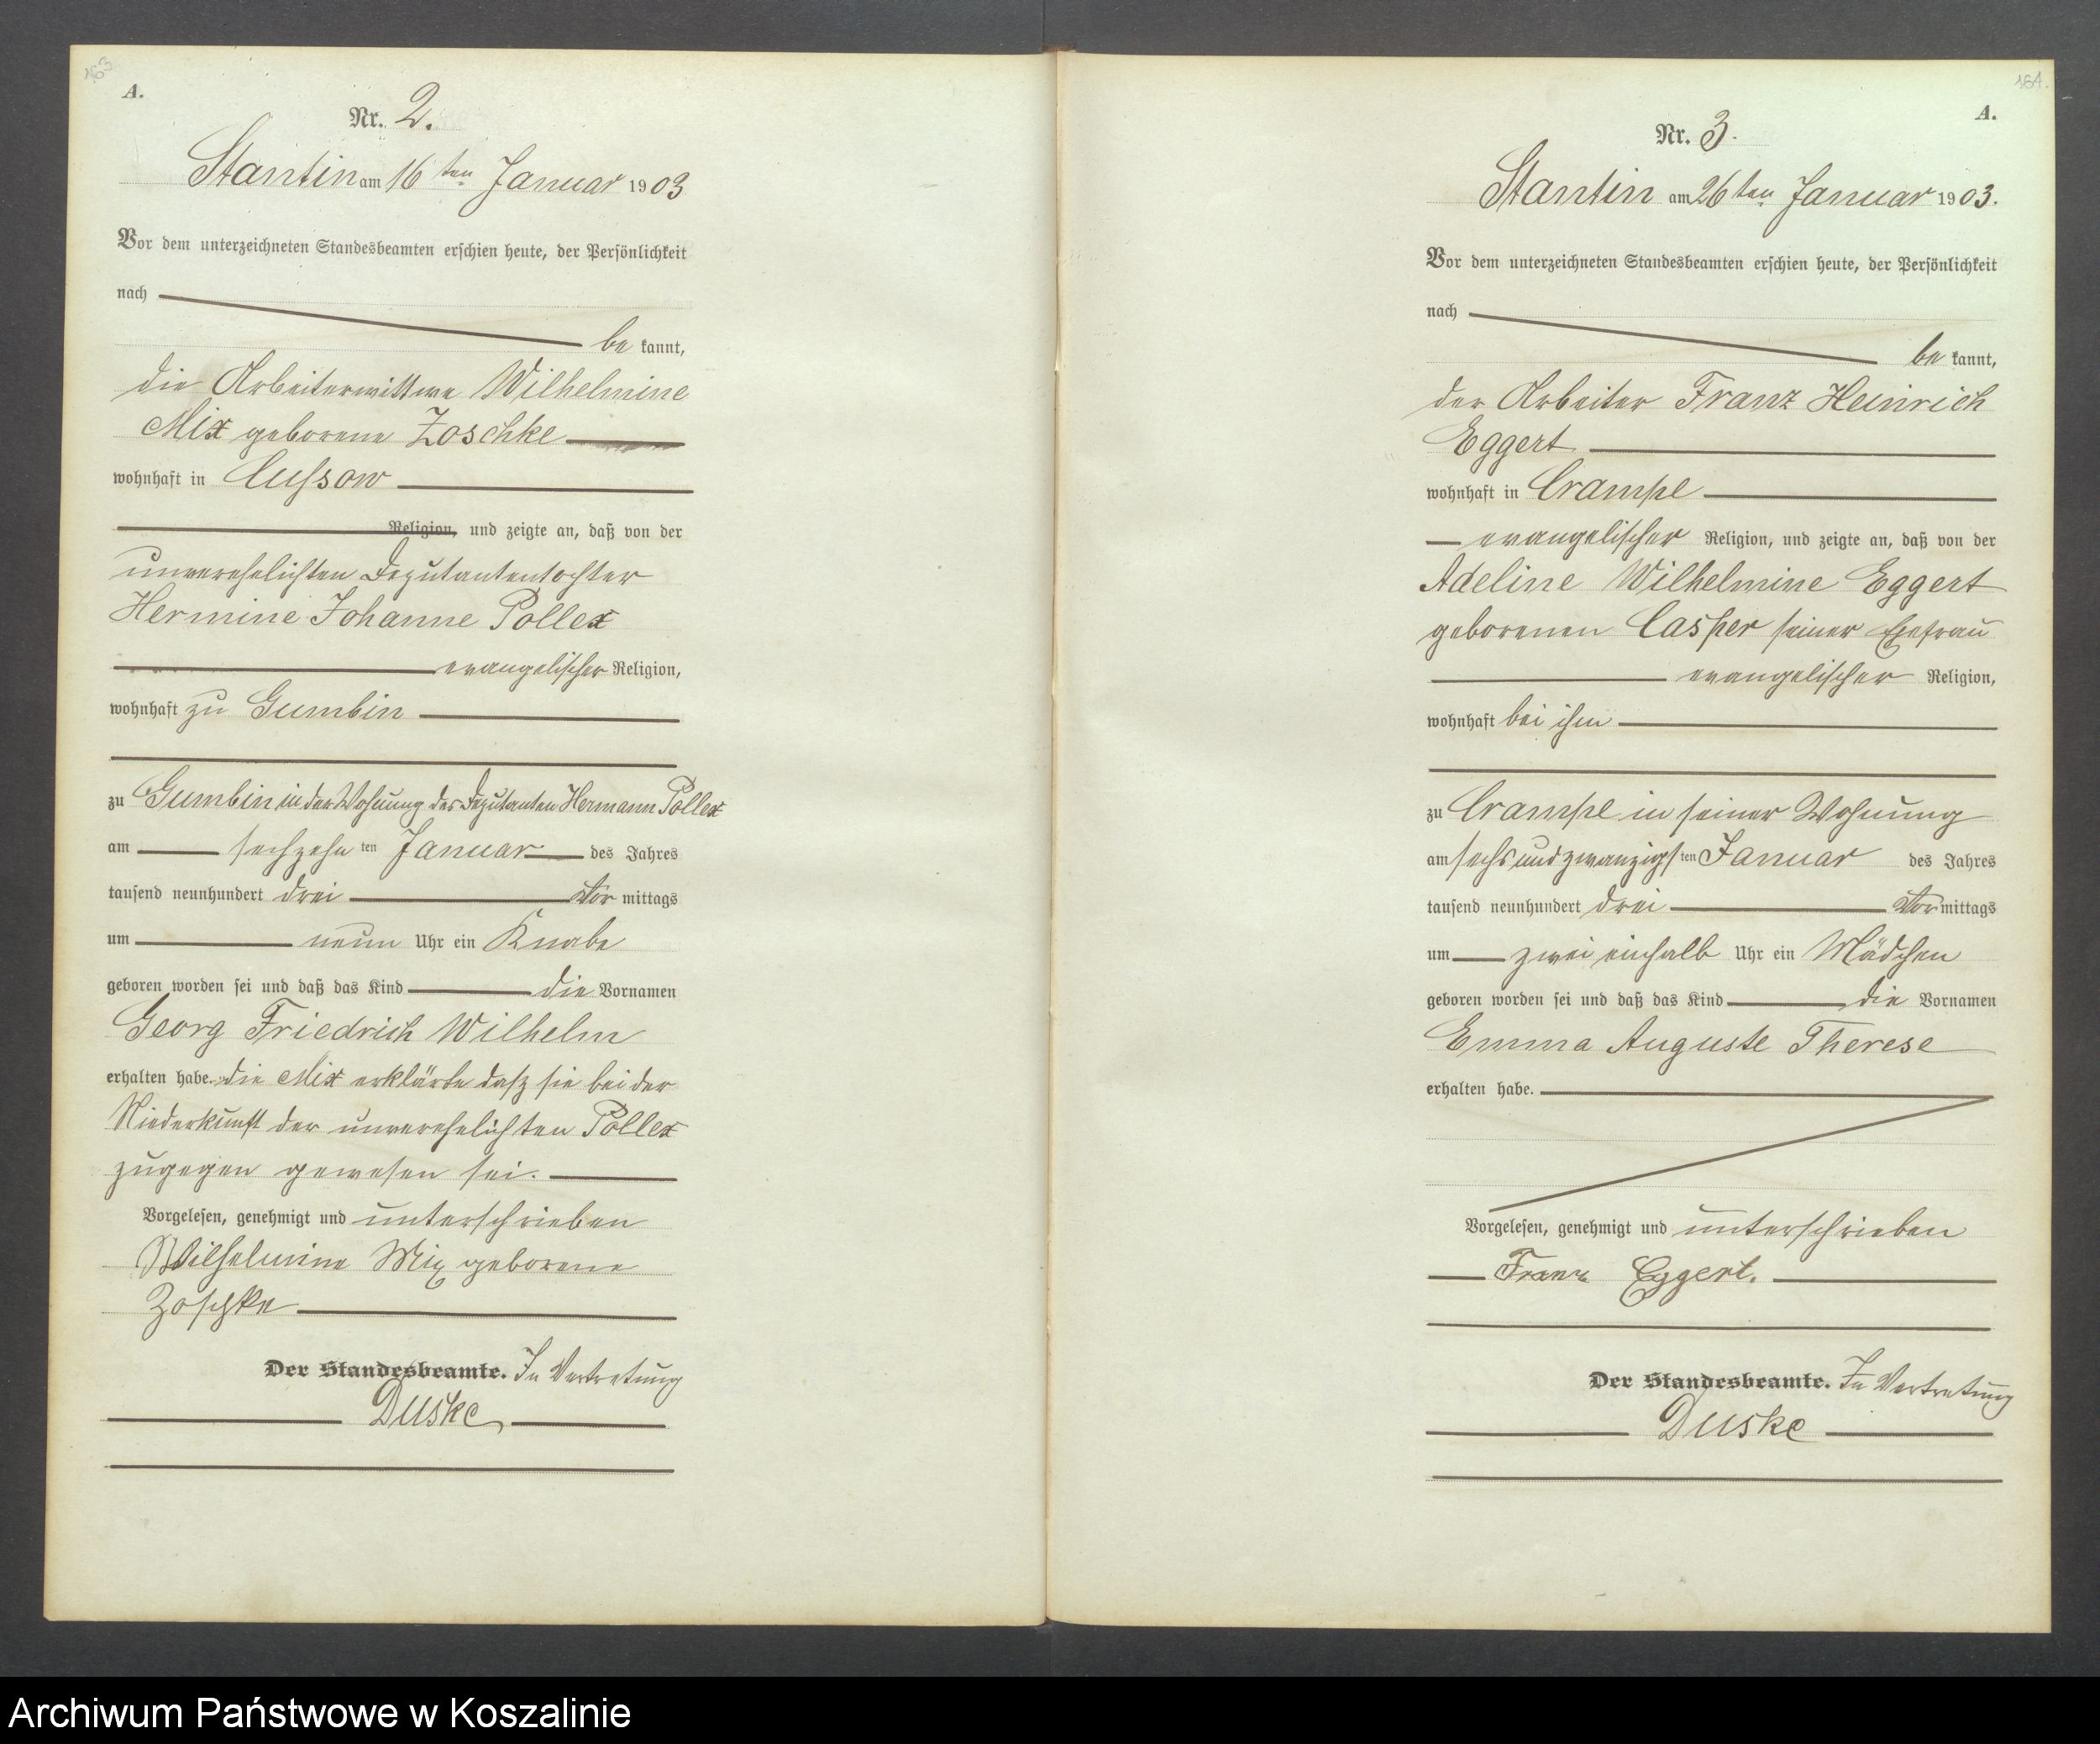 163
A.
Nr. 2.
Stantin am 16 ten Januar 1903
Vor dem unterzeichneten Standesbeamten erschien heute, der Persönlichkeit
nach
be kannt,
die Arbeiterwittwe Wilhelmine
Mix geborene Zoschke
wohnhaft in Cussow
Religion, und zeigte an, daß von der
unverehelichten Deputantentochter
Hermine Johanne Pollex
evangelischer Religion,
wohnhaft zu Gumbin
zu Gumbin in der Wohnung des Deputanten Hermann Pollex
am sechzehn ten Januar des Jahres
tausend neunhundert drei Vor mittags
um neun Uhr ein Knabe
geboren worden sei und daß das Kind die Vornamen
Georg Friedrich Wilhelm
erhalten habe. Die Mix erklärte daß sie bei der
Niederkunft der unverehelichten Pollex
zugegen gewesen sei.
Vorgelesen, genehmigt und unterschrieben
Wilhelmine Mix geborene
Zoschke
Der Standesbeamte. In Vertretung
Duske
164.
A.
Nr. 3.
Stantin am 26 ten Januar 1903.
Vor dem unterzeichneten Standesbeamten erschien heute, der Persönlichkeit
nach
be kannt,
der Arbeiter Franz Heinrich
Eggert
wohnhaft in Crampe
evangelischer Religion, und zeigte an, daß von der
Adeline Wilhelmine Eggert
geborenen Casper seiner Ehefrau
evangelischer Religion,
wohnhaft bei ihm
zu Crampe in seiner Wohnung
am sechs und zwanzigs ten Januar des Jahres
tausend neunhundert drei Vor mittags
um zwei einhalb Uhr ein Mädchen
geboren worden sei und daß das Kind die Vornamen
Emma Auguste Therese
erhalten habe.
Vorgelesen, genehmigt und unterschrieben
Franz Eggert.
Der Standesbeamte. In Vertretung
Duske
Archiwum Państwowe w Koszalinie